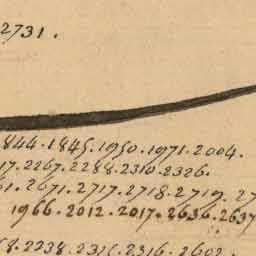 2731.
844.1845.1950.1971.2004.
17.2267.2288.2310.2326.
61.2671.2717.2718.2719.27
1966.2012.2017.2636.2637
68.2238.2315.2316.2602.